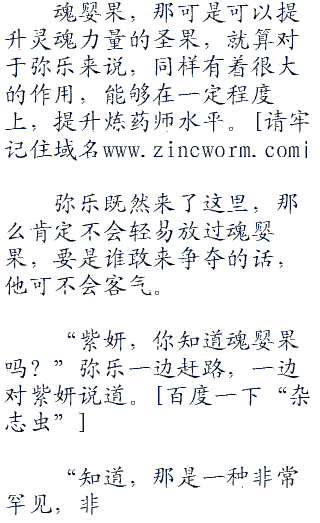 魂婴果，那可是可以提
升灵魂力量的圣果，就算对
于弥乐来说，同样有着很大
的作用，能够在一定程度
上，提升炼药师水平。[请牢
记住域名www.zincworm.com|
弥乐既然来了这里，那
么肯定不会轻易放过魂婴
果，要是谁敢来争夺的话，
他可不会客气。
“紫妍，你知道魂婴果
吗？”弥乐一边赶路，一边
对紫妍说道。[百度一下“杂
志虫”]
“知道，那是一种非常
罕见，非